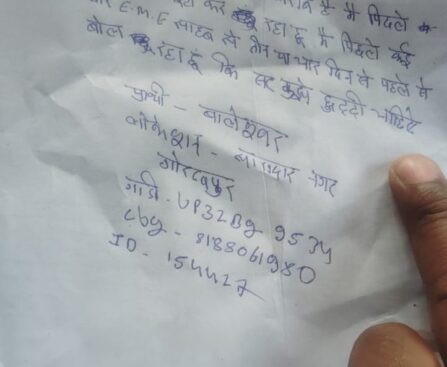 कर रहा हूं मै पिछले
और E.M.E साहब से तीन या चार दिन से पहले से
बोल रहा हूं कि सर मुझे छुट्टी चाहिए
प्रार्थी - बालेश्वर
लोकेशन - नगर
गोरखपुर
गाडी - UP32Bg 9534
cbg - 8188061980
ID - 154427